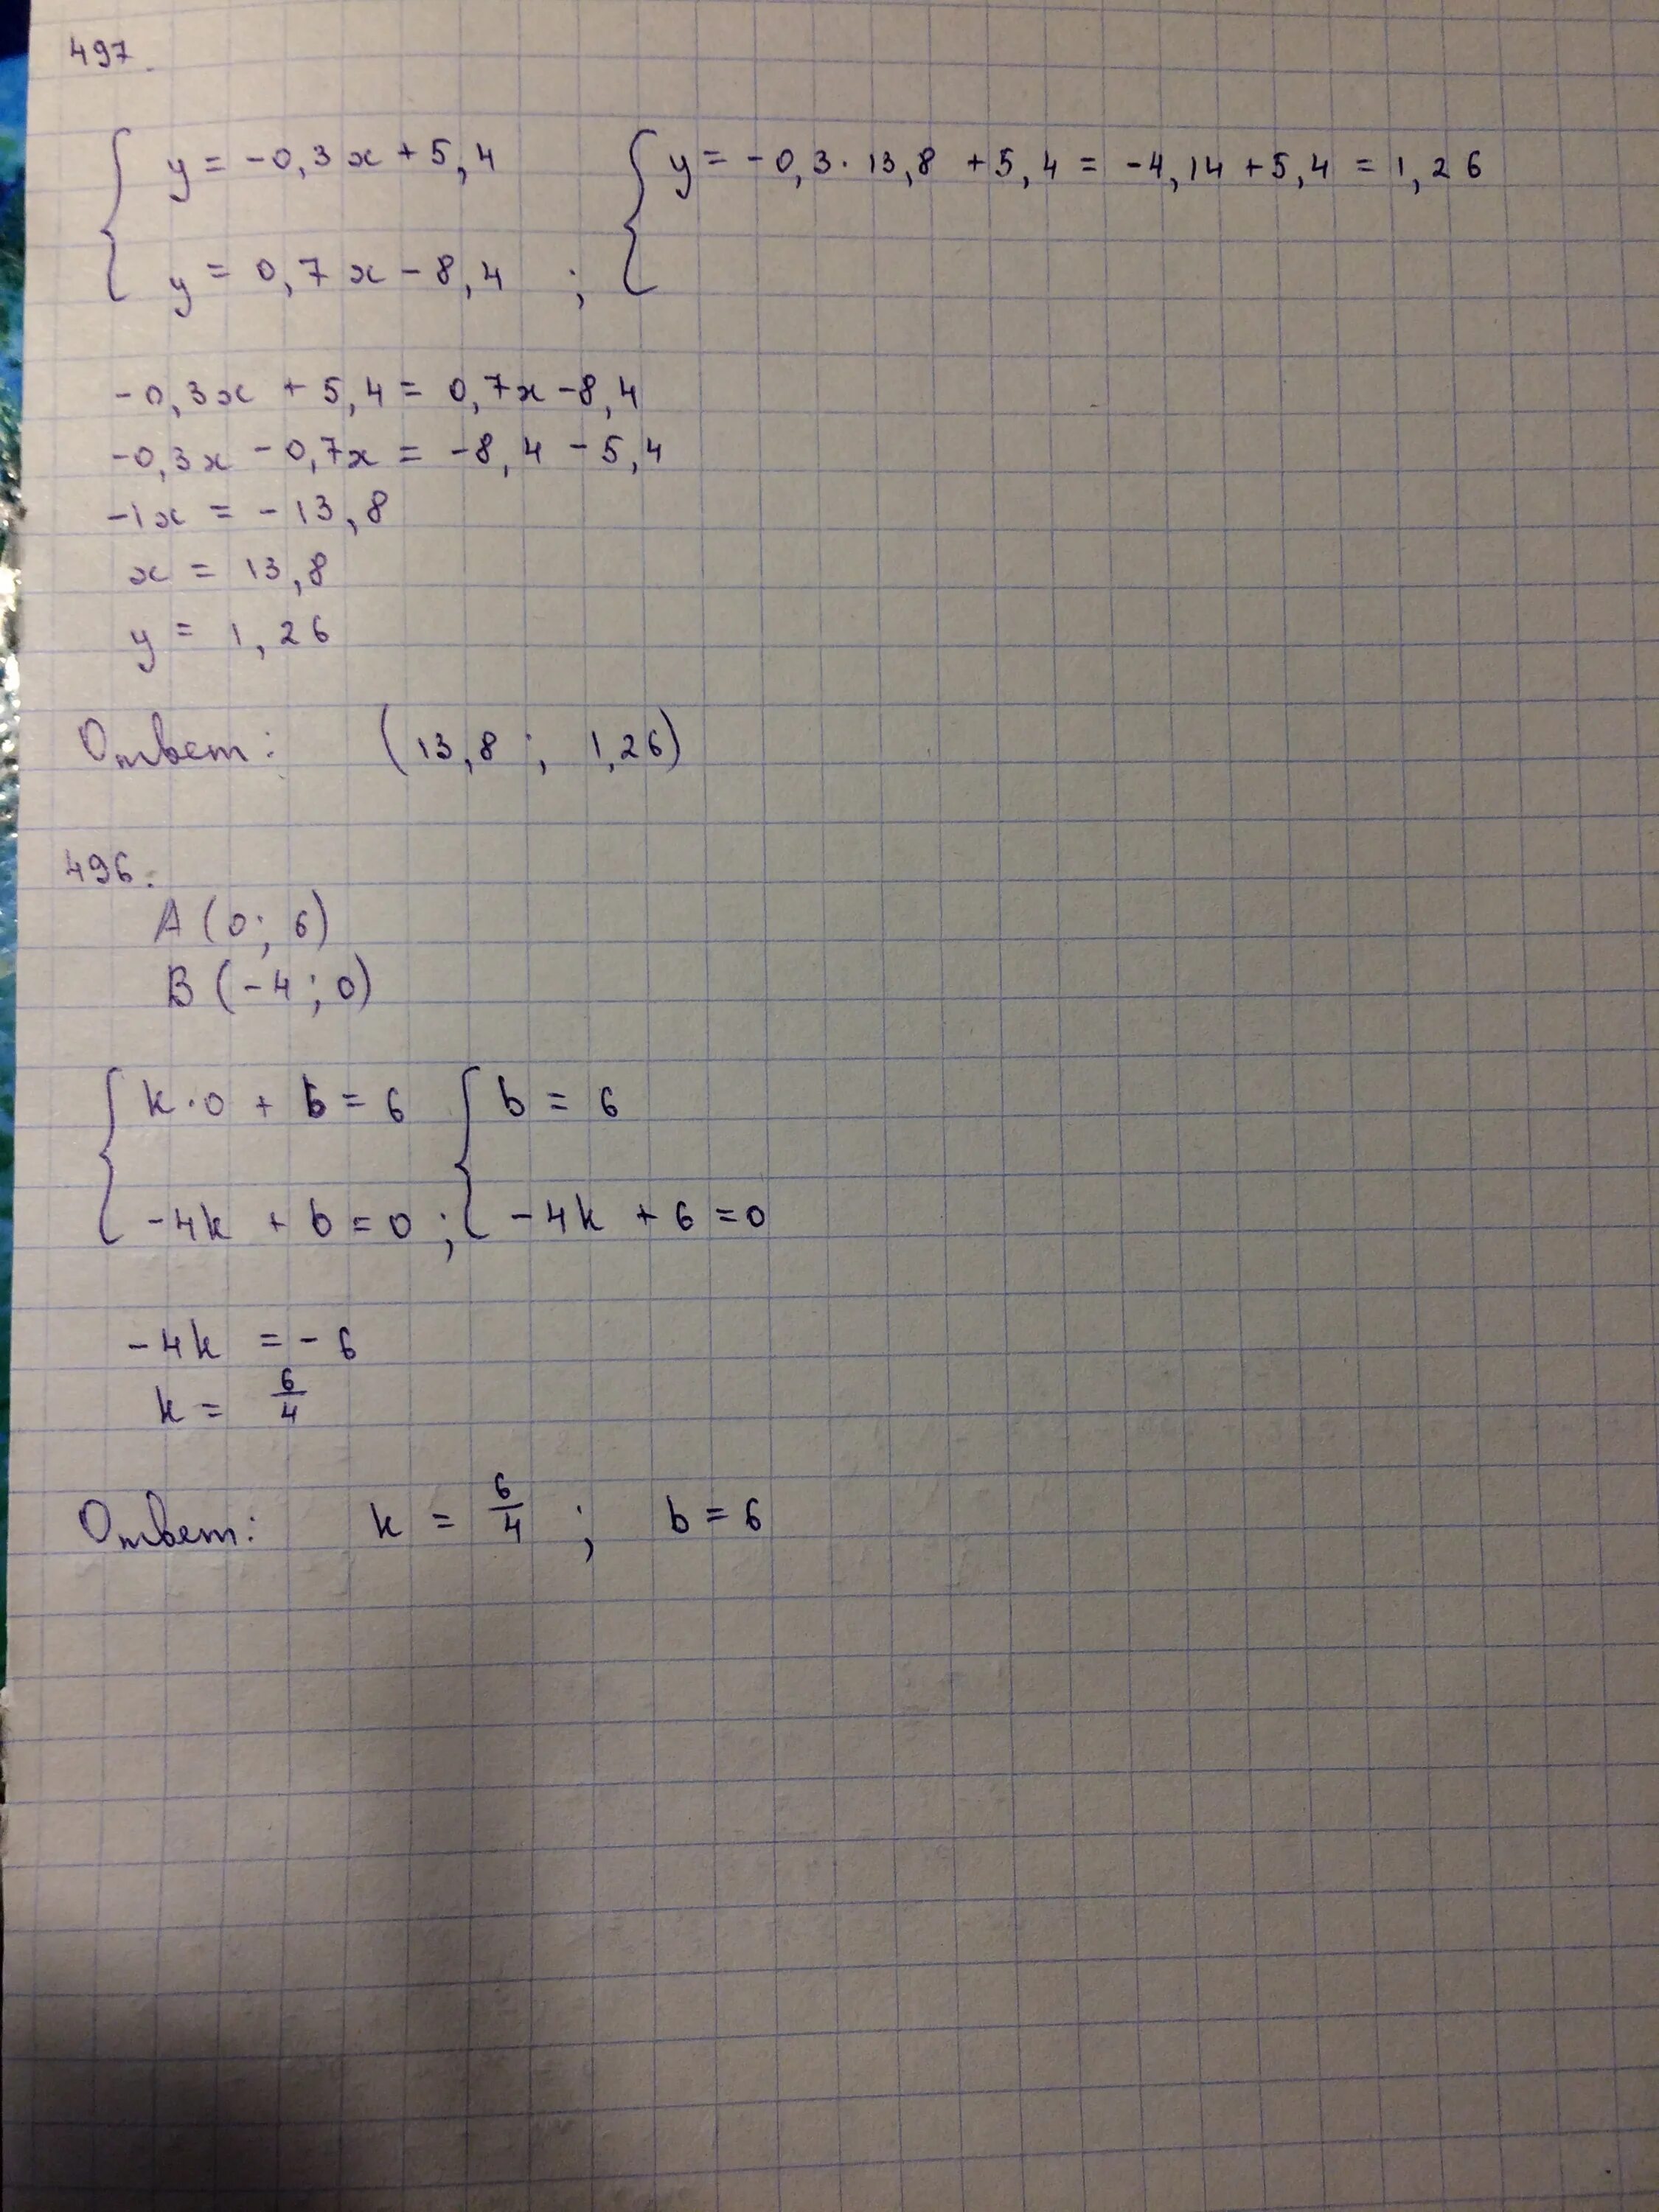 497.
y = -0,3x + 5,4
y = -0,3 · 13,8 + 5,4 = -4,14 + 5,4 = 1,26
y = 0,7x - 8,4 ;
-0,3x + 5,4 = 0,7x - 8,4
-0,3x - 0,7x = -8,4 - 5,4
-1x = -13,8
x = 13,8
y = 1,26
Ответ: (13,8 ; 1,26)
496.
A (0 ; 6)
B (-4 ; 0)
k · 0 + b = 6
b = 6
-4k + b = 0 ;
-4k + 6 = 0
-4k = -6
k = 6/4
Ответ: k = 6/4 ; b = 6